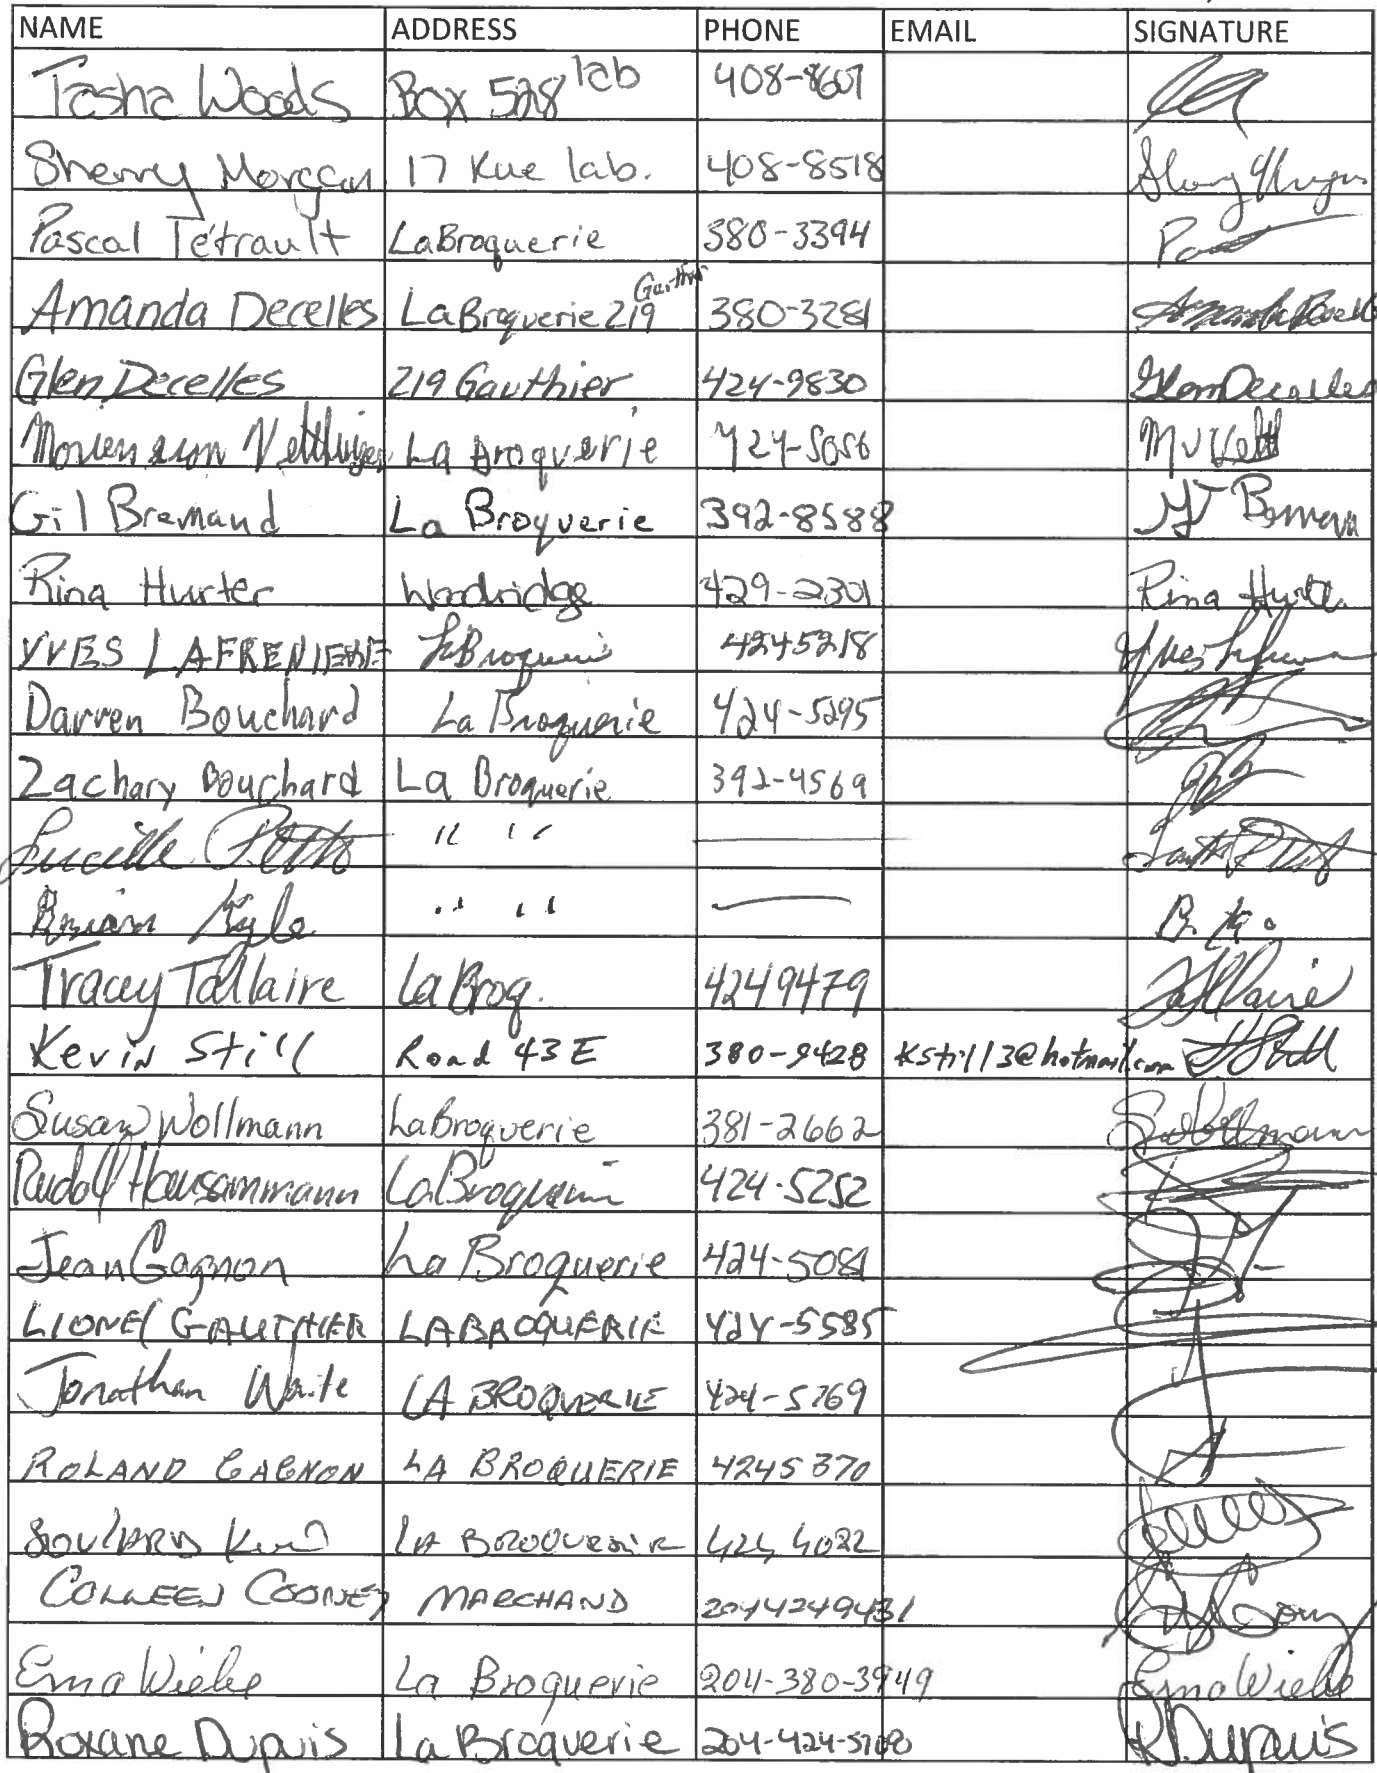 NAME ADDRESS PHONE EMAIL SIGNATURE
Tasha Woods Box 528 lab 408-8607
Sherry Morgan 17 Rue lab. 408-8518
Pascal Tétrault LaBroquerie 380-3394
Amanda Decelles LaBroquerie 219 Gauthier 380-3281 Amanda Decelles
Glen Decelles 219 Gauthier 424-9830 Glen Decelles
La Broquerie 424-5056
Gil Bremand La Broquerie 392-8588
Rina Hurter Woodridge 429-2301 Rina Hurter
YVES LAFRENIERE LaBroquerie 4245218 Yves
Darren Bouchard La Broquerie 424-5295
Zachary Bouchard La Broquerie 392-4569
Lucille " "
Brian Kyle " " B. K.
Tracey Tallaire La Broq. 4249479 Tallaire
Kevin Still Road 43 E 380-9428 kstill13@hotmail.com
Susan Wollmann LaBroquerie 381-2662 S Wollmann
Rudolf Hausammann LaBroquerie 424-5252
Jean Gagnon La Broquerie 424-5081
LIONEL GAUTHIER LABROQUERIE 424-5585
Jonathan Waite LA BROQUERIE 424-5769
ROLAND GAGNON LA BROQUERIE 4245370
LA BROQUERIE 424 4022
COLLEEN COONEY MARCHAND 2044249431
Erna Wiebe La Broquerie 204-380-3949 Erna Wiebe
Roxane Dupuis La Broquerie 204-424-5708 R Dupuis